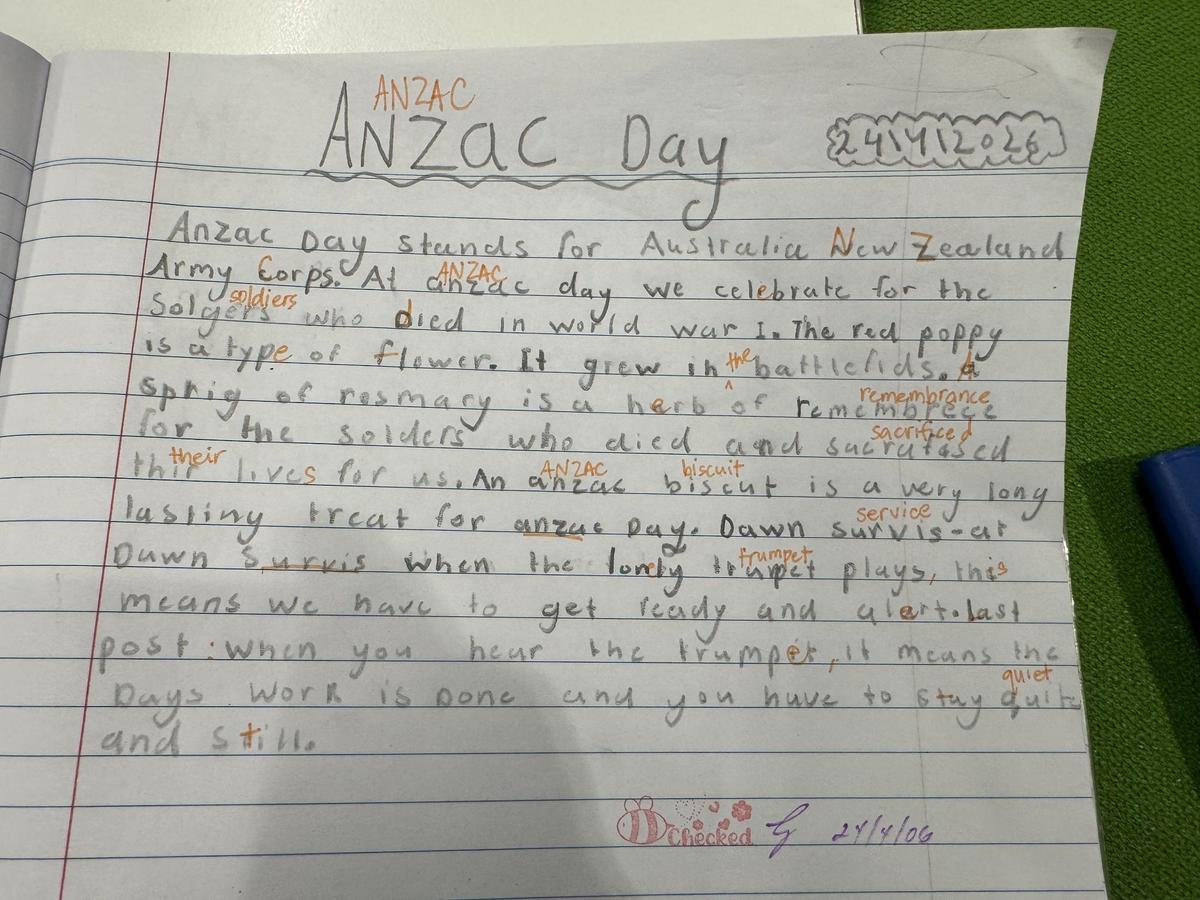 ANZAC
ANZAC Day 24\4\2026
Anzac Day stands for Australia New Zealand
Army Corps. At anzac day we celebrate for the
ANZAC
Solgers who died in world war I. The red poppy
soldiers
is a type of flower. It grew in the battlefids. A
sprig of rosmary is a herb of remembrece
remembrance
for the solders who died and sacratased
sacrificed
thir lives for us. An anzac biscut is a very long
their ANZAC biscuit
lasting treat for anzac Day. Dawn survis-at
service
Dawn survis when the lonely trumpet plays, this
trumpet
means we have to get ready and alert. last
post: when you hear the trumpet, it means the
Days work is Done and you have to stay quite
quiet
and still.
Checked 24/4/06